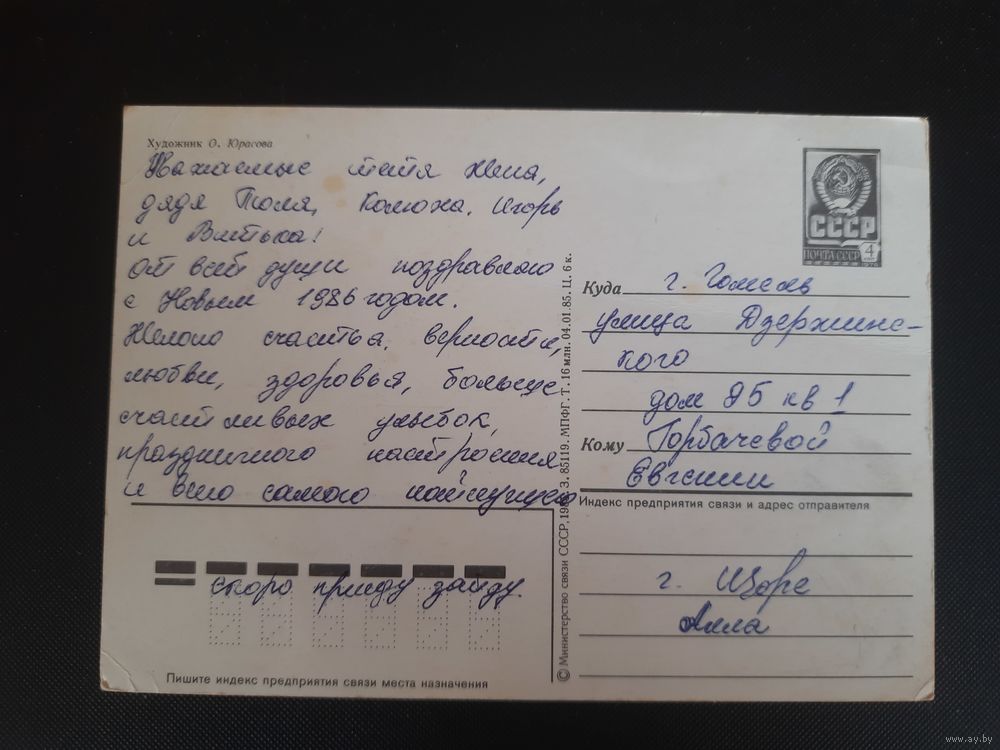 Художник О. Юрасова
Уважаемые тётя Жена,
дядя Толя, Колюха, Игорь
и Витька!
От всей души поздравляю
с Новым 1986 годом.
Желаю счастья, верности,
любви, здоровья, больше
счастливых улыбок,
праздничного настроения
и всего самого наилучшего
скоро приеду зайду.
Пишите индекс предприятия связи места назначения
© Министерство связи СССР, З. 85119. МПФГ. Т. 16 млн. 04.01.85. Ц. 6 к.
СССР
ПОЧТА СССР 4
Куда г. Гомель
улица Дзержинс-
кого
дом 85 кв 1
Кому Горбачевой
Евгении
Индекс предприятия связи и адрес отправителя
г.
Алла
www.ay.by